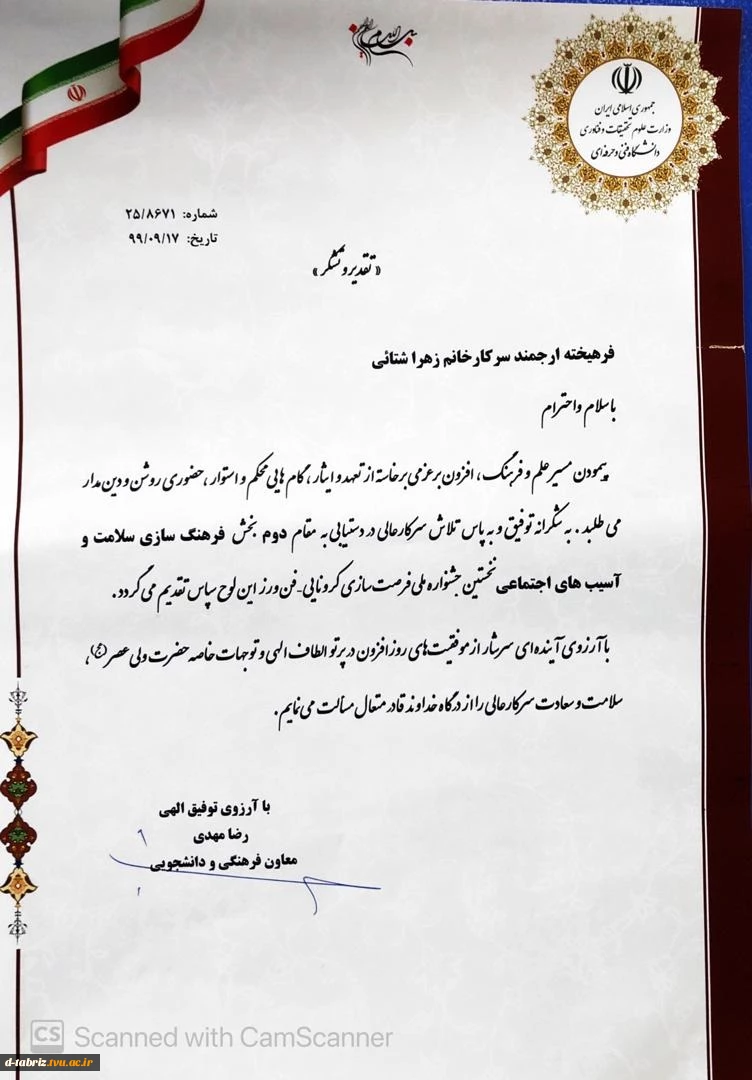 بسم الله الرحمن الرحیم
جمهوری اسلامی ایران
وزارت علوم تحقیقات و فناوری
دانشگاه فنی و حرفه‌ای
شماره: ۲۵/۸۶۷۱
تاریخ: ۹۹/۰۹/۱۷
« تقدیر و تشکر »
فرهیخته ارجمند سرکارخانم زهرا شتائی
باسلام واحترام
پیمودن مسیر علم و فرهنگ، افزون بر عزمی برخاسته از تعهد و ایثار، گام هایی محکم و استوار، حضوری روشن و دین مدار
می طلبد. به شکرانه توفیق و به پاس تلاش سرکارعالی در دستیابی به مقام دوم بخش فرهنگ سازی سلامت و
آسیب های اجتماعی نخستین جشنواره ملی فرصت سازی کرونایی-فن ورز این لوح سپاس تقدیم می گردد.
با آرزوی آینده ای سرشار از موفقیت‌های روزافزون در پرتو الطاف الهی و توجهات خاصه حضرت ولی عصر(عج)،
سلامت و سعادت سرکارعالی را از درگاه خداوند قادر متعال مسألت می نمایم.
با آرزوی توفیق الهی
رضا مهدی
معاون فرهنگی و دانشجویی
CS Scanned with CamScanner
d-tabriz.tvu.ac.ir